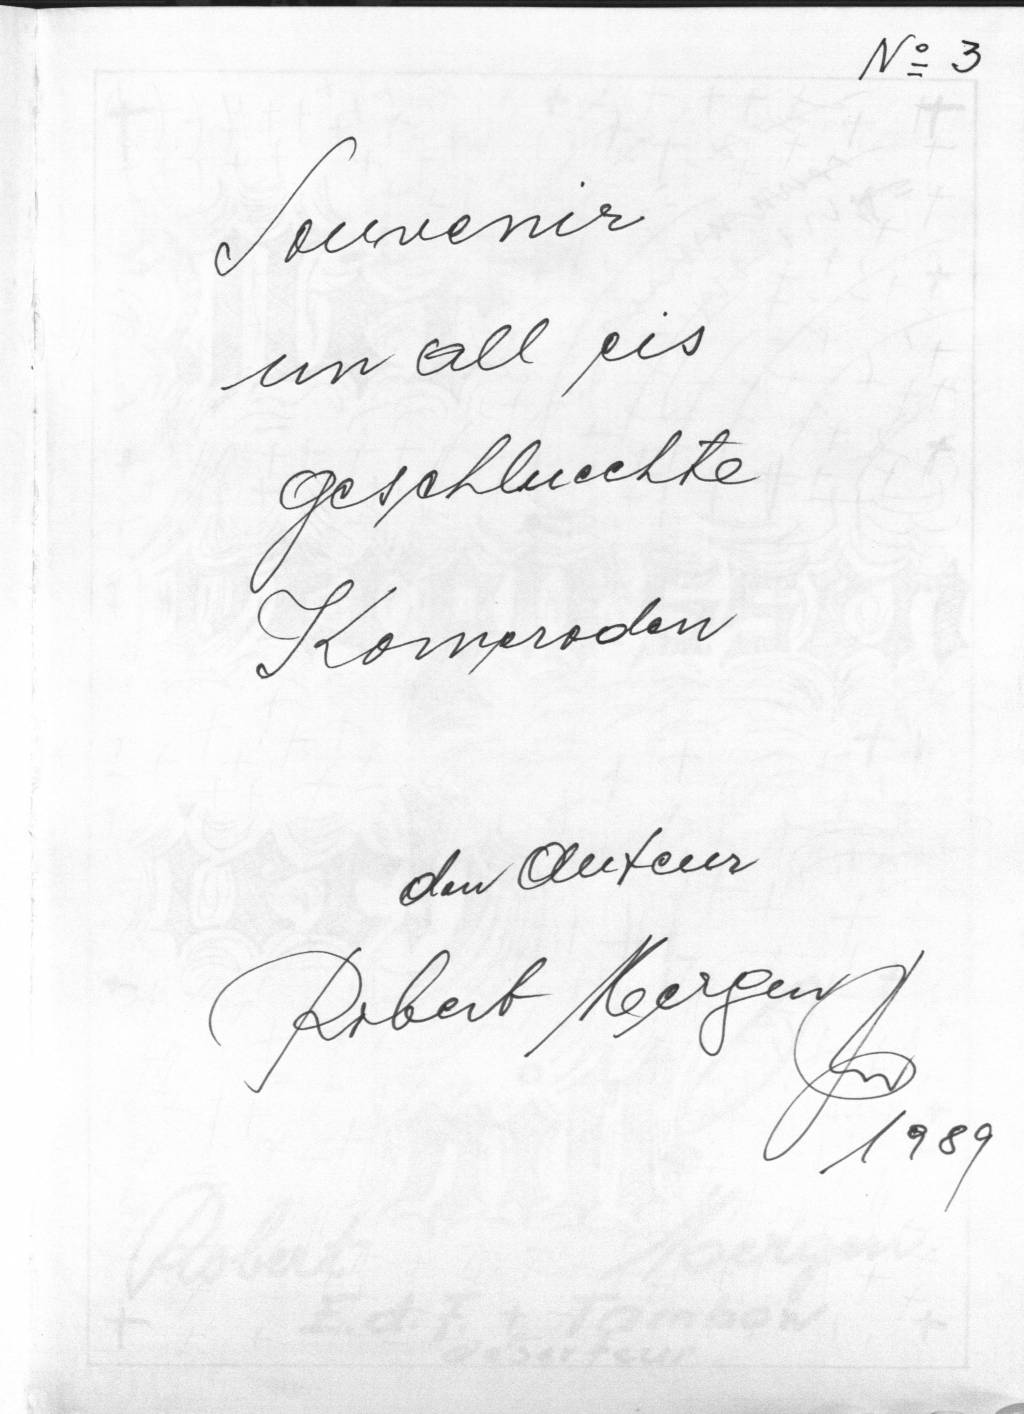 Nº 3
Souvenir
un all eis
geschluechte
Komeroden
den Auteur
Robert Mergen
1989
Robert Mergen
E.d.F + Tambow
deserteur